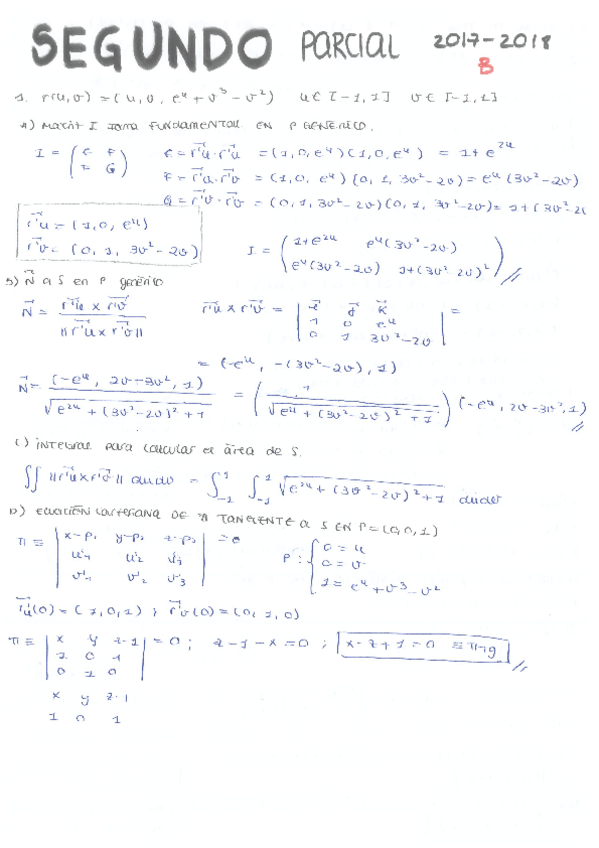 SEGUNDO PARCIAL 2017-2018
B
1. r(u,v) = (u, v, e^u + v^3 - v^2) u ∈ [-1,1] v ∈ [-1,1]
A) MATRIZ I FORMA FUNDAMENTAL EN P GENÉRICO.
I = (E F / F G) E = r'u · r'u = (1,0,e^u)(1,0,e^u) = 1+e^{2u}
F = r'u · r'v = (1,0,e^u)(0,1,3v^2-2v) = e^u(3v^2-2v)
G = r'v · r'v = (0,1,3v^2-2v)(0,1,3v^2-2v) = 1+(3v^2-2v
r'u = (1,0,e^u)
r'v = (0,1,3v^2-2v)
I = (1+e^{2u} e^u(3v^2-2v) / e^u(3v^2-2v) 1+(3v^2 2v)^2)
B) N a S en P genérico
N = r'u x r'v / ||r'u x r'v|| r'u x r'v = |i j k / 1 0 e^u / 0 1 3v^2-2v| =
= (-e^u, -(3v^2-2v), 1)
N = (-e^u, 2v-3v^2, 1) / √(e^{2u} + (3v^2-2v)^2 + 1) = (1 / √(e^{2u} + (3v^2-2v)^2 + 1)) (-e^u, 2v-3v^2, 1)
C) integral para calcular el área de S.
∬ ||r'u x r'v|| dudv = ∫_{-1}^{1} ∫_{-1}^{1} √(e^{2u} + (3v^2-2v)^2 + 1) dudv
D) ECUACIÓN CARTESIANA DE π TANGENTE A S EN P=(0,0,1)
π ≡ |x-p1 y-p2 z-p3 / u'1 u'2 u'3 / v'1 v'2 v'3| = 0 P: {0=u / 0=v / 1=e^u+v^3-v^2
r'u(0) = (1,0,1) ; r'v(0) = (0,1,0)
π ≡ |x y z-1 / 1 0 1 / 0 1 0| = 0 ; z-1-x=0 ; x-z+1=0 ≡ π tg
x y z-1
1 0 1